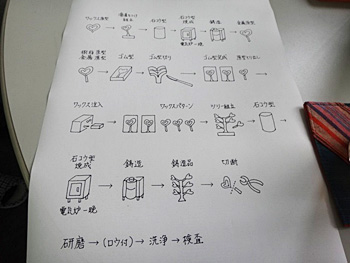 ワックス原型 → 湯道だけ組立 → 石コウ型 → 石コウ型焼成 電気炉一晩 → 鋳造 → 金属原型
樹脂原型 金属原型 → ゴム型 → ゴム型切り → ゴム型完成 → 原型取り出し
ワックス注入 → ワックスパターン → ツリー組立 → 石コウ型 →
石コウ型焼成 電気炉一晩 → 鋳造 → 鋳造品 → 切断
研磨→(ロウ付)→洗浄→検査